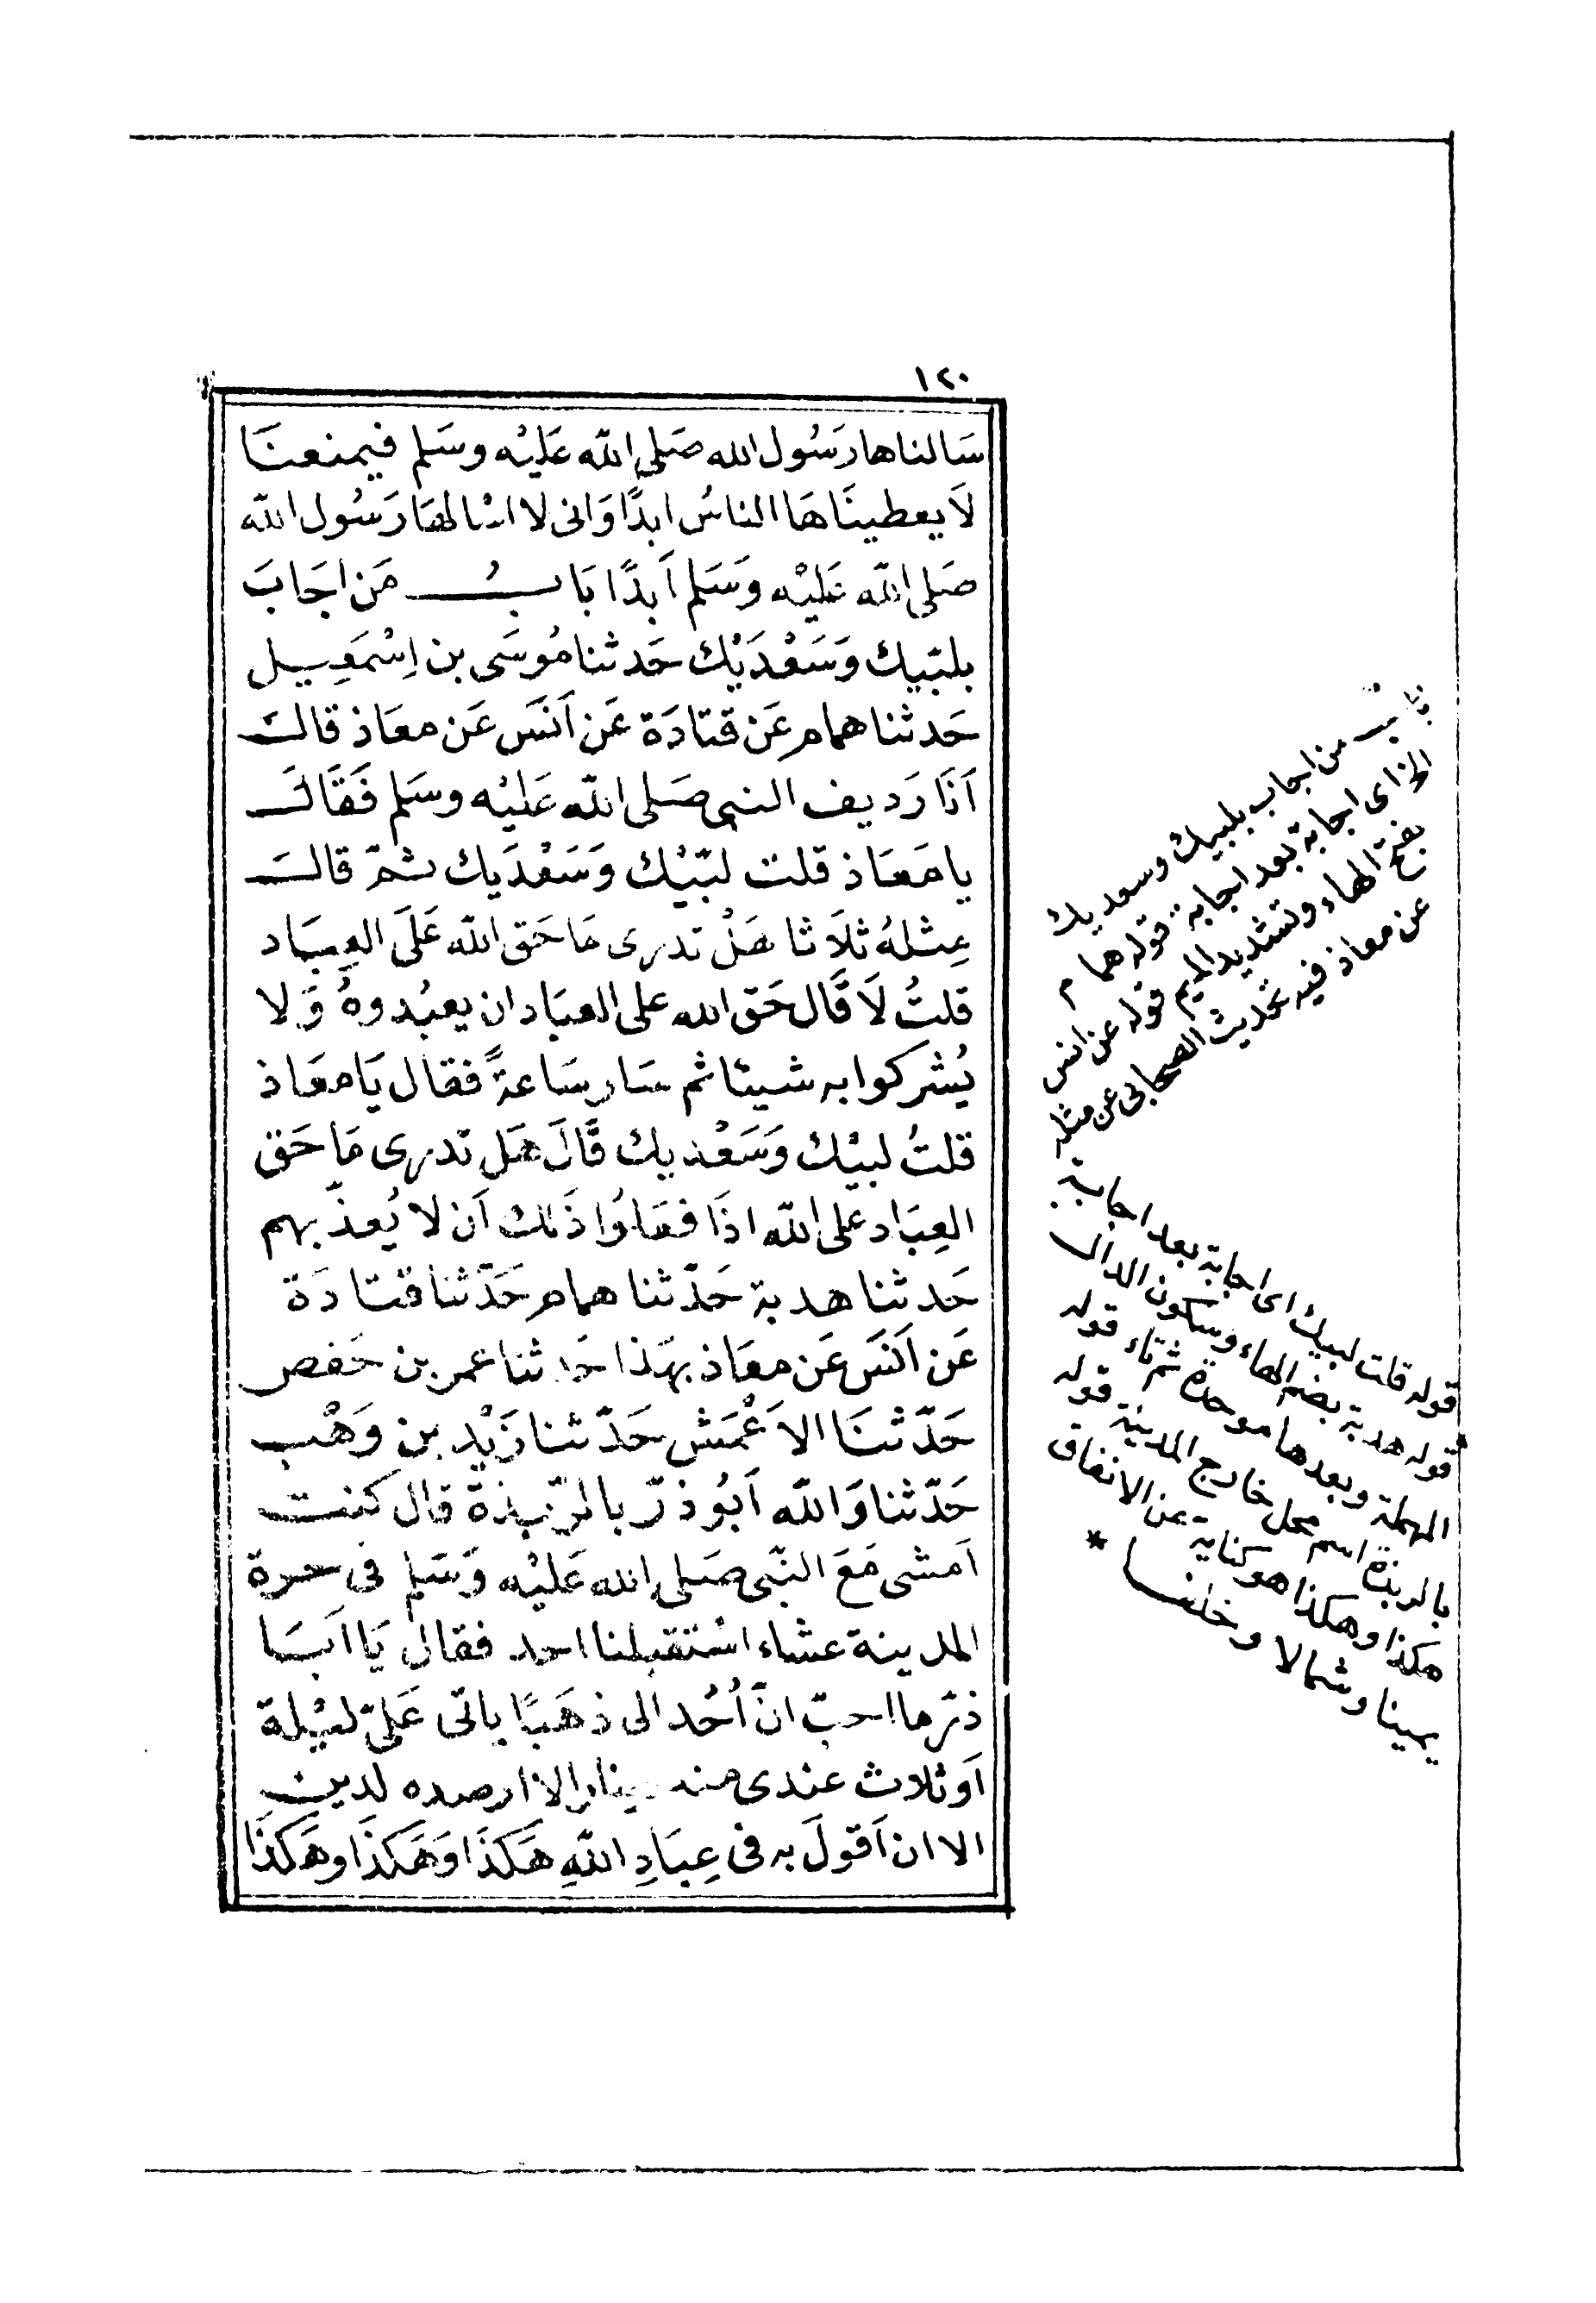 ١٢٠
سَالناها رَسُول الله صَلى الله عَلَيْه وسَلم فيمنعنَا
لَا يعطينَاهَا الناسُ ابدًا وَانى لا اسْالهَا رَسُول الله
صَلى الله عَليْه وَسَلم اَبدًا بَابُ مَن اجَابَ
بلبّيك وَسَعْدَيْك حَدثنا مُوسَى بن اِسْمَعِيل
حَدثنا همام عَن قتادَة عَن اَنسَ عَن معَاذ قالَ
اَنَا رَديف النبى صَلى الله عَليْه وسَلم فَقَالَ
يا مَعَاذ قلت لبّيْك وَسَعْدَيك ثمّ قالَ
مِثلهُ ثلاَثا هَلْ تدرى مَا حَق الله عَلَى العِبَاد
قلتُ لَا قَال حَق الله على العبَاد ان يعبُدوهُ وَلا
يُشركوا به شيئا ثم سَار سَاعةً فقال يَا معَاذ
قلتُ لبيْك وَسَعْديك قَالَ هَل تدرى مَا حَق
العِبَاد على الله اذَا فعَلوُا ذَلك اَن لا يُعذّبهم
حَدثنا هدبة حَدّثنا همام حَدّثنا قتادَة
عَن اَنسَ عَن معَاذ بهَذا حَدثنا عمر بن حَفص
حَدّثنَا الاَعْمَش حَدّثنا زَيْد بن وَهْب
حَدّثنا وَالله اَبُو ذرّ بالرّبذة قال كنت
اَمشى مَعَ النّبى صَلى الله عَليْه وَسَلم فى حرة
المدينة عشاء اسْتقبلنا احد فقال يَا اَبَا
ذرّ ما احبّ انّ اُحُدا لى ذهَبًا ياتى عَلىّ ليْلة
اَو ثلاث عندى منه دينار الا ارصده لدين
الا ان اَقولَ به فى عِبَادِ اللهِ هَكَذَا وَهَكذَا وهَكذَا
باب من اجاب بلبيك وسعديك
الخ اى اجابة بعد اجابة قوله همام
بفتح الهاء وتشديد الميم قوله عن انس
عن معاذ فيه تحديث الصحابى عن مثله
قوله قلت لبيك اى اجابة بعد اجابة
قوله هدبة بضم الهاء وسكون الدال
المهملة وبعدها موحدة ثم تاء قوله
بالربذة اسم محل خارج المدينة قوله
هكذا وهكذا هو كناية عن الانفاق
يمينا وشمالا وخلفا *